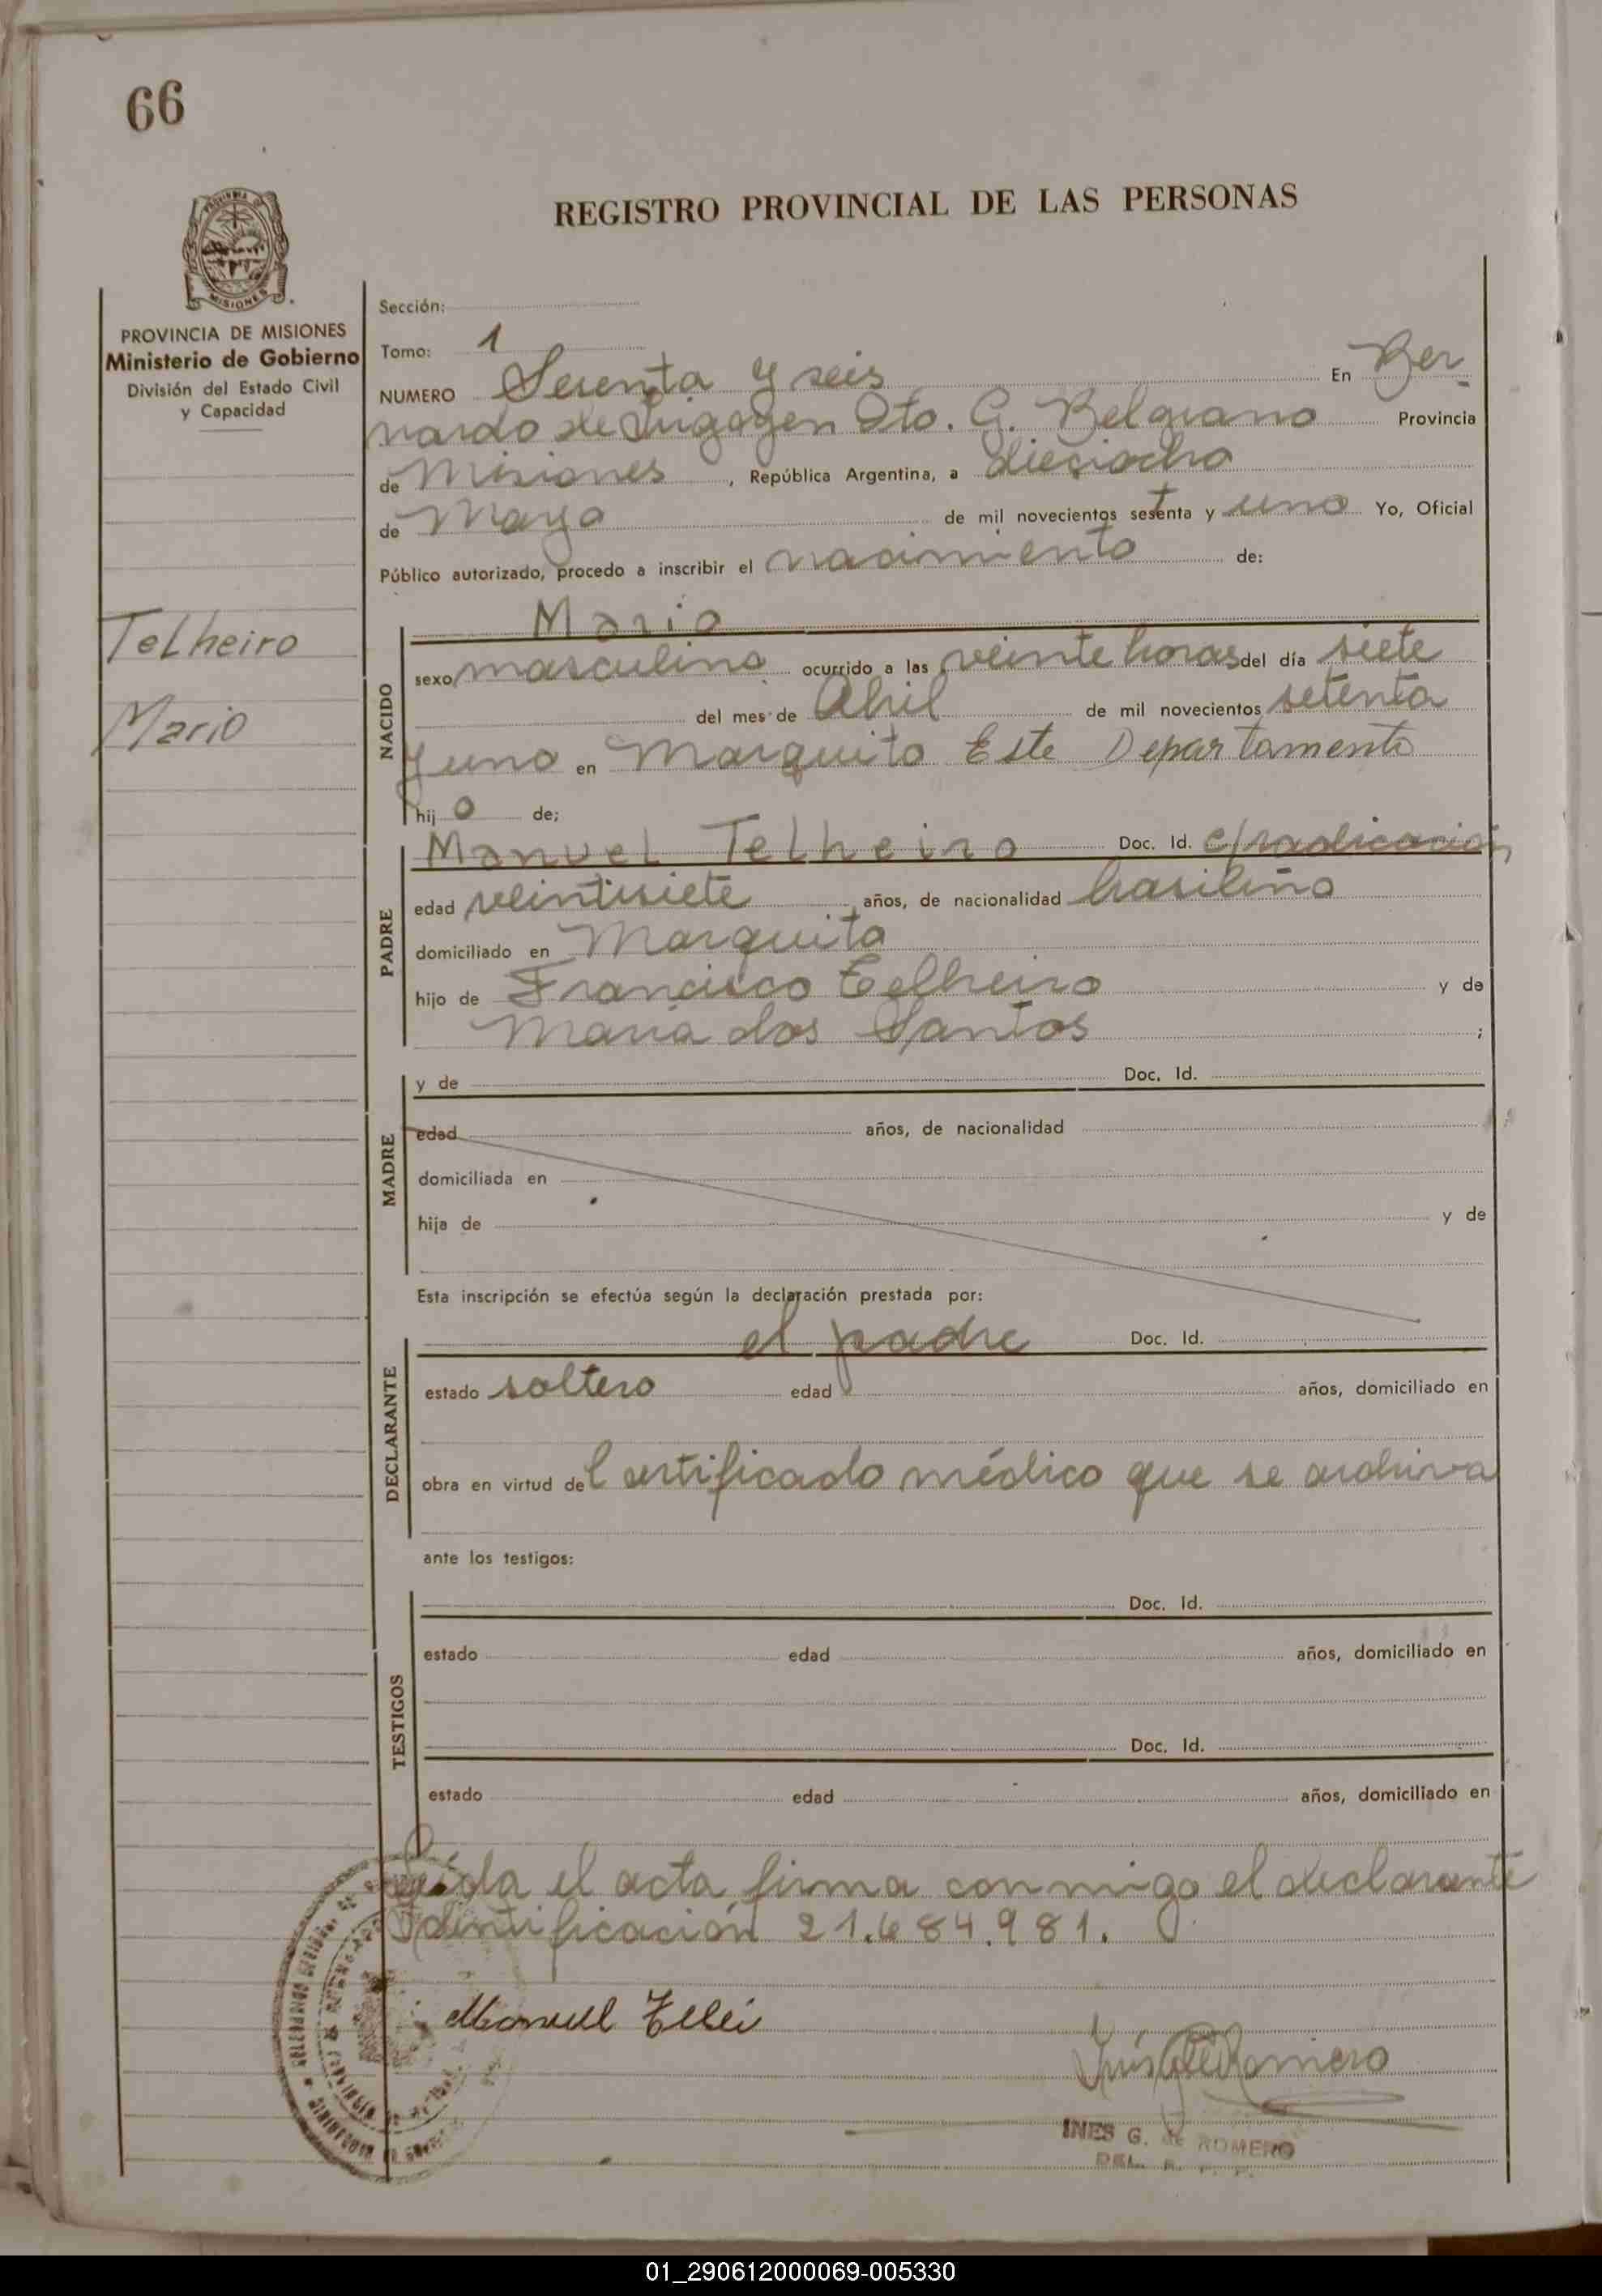 66
REGISTRO PROVINCIAL DE LAS PERSONAS
PROVINCIA DE
MISIONES
PROVINCIA DE MISIONES
Ministerio de Gobierno
División del Estado Civil
y Capacidad
Telheiro
Mario
Sección:
Tomo: 1
NUMERO Sesenta y seis En Ber-
nardo de Irigoyen Dto. G. Belgrano Provincia
de Misiones, República Argentina, a dieciocho
de Mayo de mil novecientos setenta y uno Yo, Oficial
Público autorizado, procedo a inscribir el nacimiento de:
NACIDO
Mario
sexo masculino ocurrido a las veinte horas del día siete
del mes de Abril de mil novecientos setenta
y uno en Marquita Este Departamento
hijo de;
PADRE
Manuel Telheiro Doc. Id. c/radicación
edad veintisiete años, de nacionalidad brasileña
domiciliado en Marquita
hijo de Francisco Telheiro y de
Maria dos Santos ;
MADRE
y de Doc. Id.
edad años, de nacionalidad
domiciliada en
hija de y de
Esta inscripción se efectúa según la declaración prestada por:
DECLARANTE
el padre Doc. Id.
estado soltero edad años, domiciliado en
obra en virtud del certificado médico que se archiva
ante los testigos:
TESTIGOS
Doc. Id.
estado edad años, domiciliado en
Doc. Id.
estado edad años, domiciliado en
Leída el acta firma conmigo el declarante
Identificación 21.684.981.
Manuel
Romero
INES G. de ROMERO
DEL. R. P. P.
01_290612000069-005330